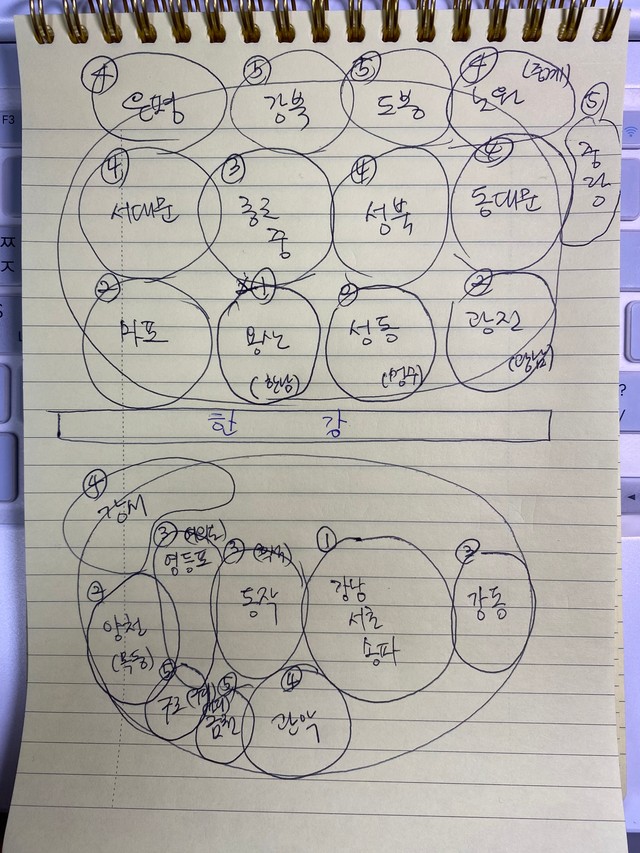 ④ ⑤ ⑤ ④ (중계)
은평 강북 도봉 노원
⑤
중랑
④ ③ ④ ④
서대문 종로 성북 동대문
중
② ① ② ②
마포 용산 성동 광진
(한남) (성수) (광남)
한 강
④
강서
③ (여의도)
영등포
③
동작
①
강남
서초
송파
③
강동
②
양천
(목동)
⑤
구로
⑤
금천
④
관악
F3
ㅉ
ㅈ
?
/